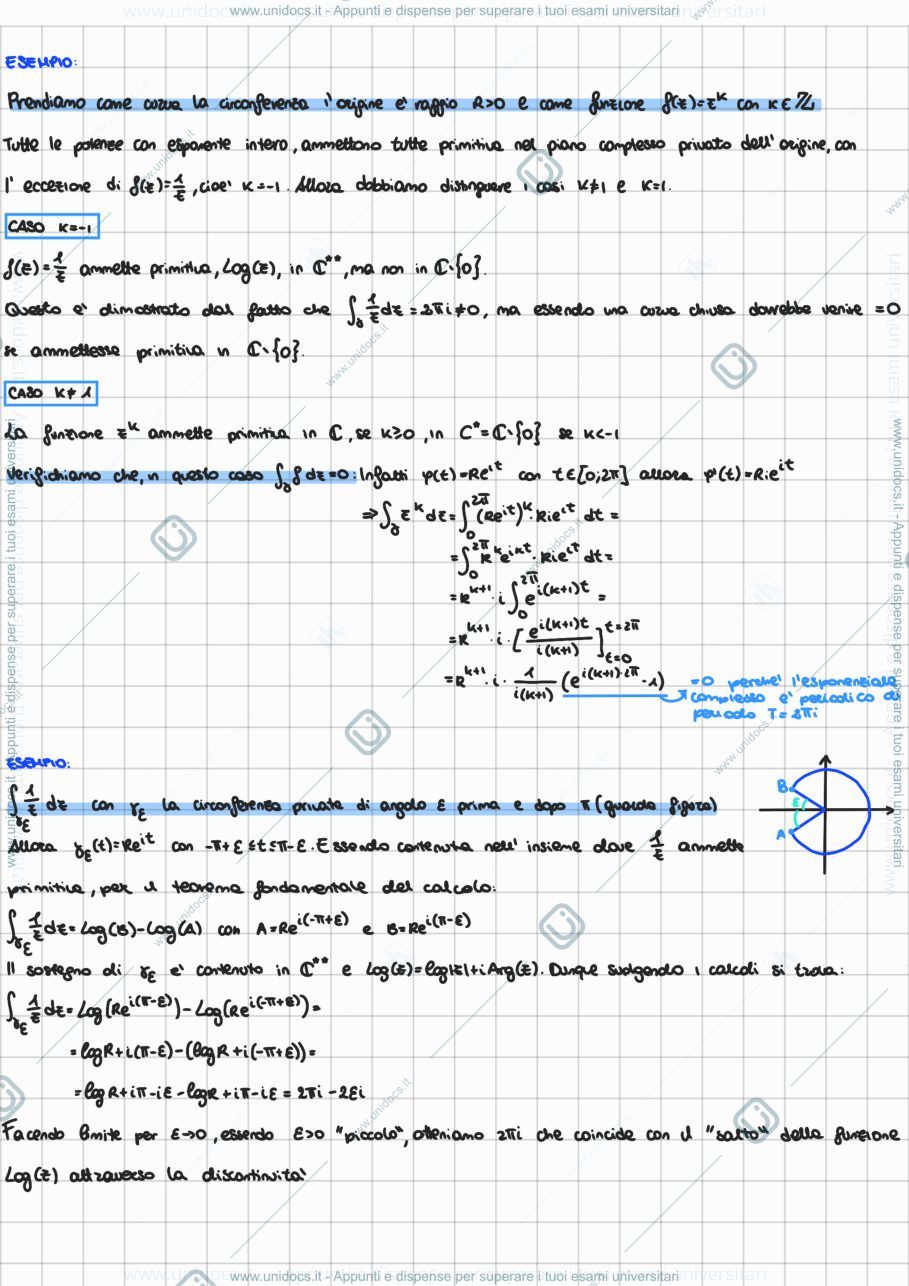 www.unidocs.it - Appunti e dispense per superare i tuoi esami universitari
ESEMPIO:
Prendiamo come curva la circonferenza l'origine e' raggio R>0 e come funzione f(z)=z^k con k∈ℤ
Tutte le potenze con esponente intero, ammettono tutte primitiva nel piano complesso privato dell'origine, con
l'eccezione di f(z)=1/z, cioe' k=-1. Allora dobbiamo distinguere i casi k≠1 e k=1.
CASO k=-1
f(z)=1/z ammette primitiva, Log(z), in ℂ**, ma non in ℂ\{0}.
Questo e' dimostrato dal fatto che ∫_γ 1/z dz = 2πi ≠ 0, ma essendo una curva chiusa dovrebbe venire =0
se ammettesse primitiva in ℂ\{0}.
CASO k≠1
La funzione z^k ammette primitiva in ℂ, se k≥0, in C*=ℂ\{0} se k<-1
Verifichiamo che, in questo caso ∫_γ f dz=0: Infatti φ(t)=Re^{it} con t∈[0;2π] allora φ'(t)=Rie^{it}
⇒∫_γ z^k dz=∫_0^{2π} (Re^{it})^k·Rie^{it} dt =
=∫_0^{2π} R^k e^{ikt}·Rie^{it} dt=
=R^{k+1}·i ∫_0^{2π} e^{i(k+1)t} =
=R^{k+1}·i·[e^{i(k+1)t}/i(k+1)]_{t=0}^{t=2π}
=R^{k+1}·i·1/i(k+1) (e^{i(k+1)·2π}-1)
=0 perche' l'esponenziale
complesso e' periodico di
periodo T=2πi
ESEMPIO:
∫_{γ_ε} 1/z dz con γ_ε la circonferenza privata di angolo ε prima e dopo π (guarda figura)
B
ε
A
Allora γ_ε(t)=Re^{it} con -π+ε≤t≤π-ε. Essendo contenuta nell'insieme dove 1/z ammette
primitiva, per il teorema fondamentale del calcolo:
∫_{γ_ε} 1/z dz=Log(B)-Log(A) con A=Re^{i(-π+ε)} e B=Re^{i(π-ε)}
Il sostegno di γ_ε e' contenuto in ℂ** e Log(z)=log|z|+iArg(z). Dunque svolgendo i calcoli si trova:
∫_{γ_ε} 1/z dz=Log(Re^{i(π-ε)})-Log(Re^{i(-π+ε)})=
=logR+i(π-ε)-(logR+i(-π+ε))=
=logR+iπ-iε-logR+iπ-iε = 2πi-2εi
Facendo limite per ε→0, essendo ε>0 "piccolo", otteniamo 2πi che coincide con il "salto" della funzione
Log(z) attraverso la discontinuita'
www.unidocs.it - Appunti e dispense per superare i tuoi esami universitari